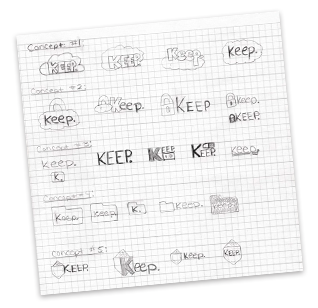 Concept #1:
KEEP. KEEP. Keep. Keep.
Concept #2:
Keep. Keep. KEEP Keep.
KEEP.
Concept #3:
Keep. KEEP. KEEP KEEP. Keep.
K.
Concept #4:
Keep. Keep. K. Keep.
Concept #5:
KEEP. Keep. Keep. KEEP.